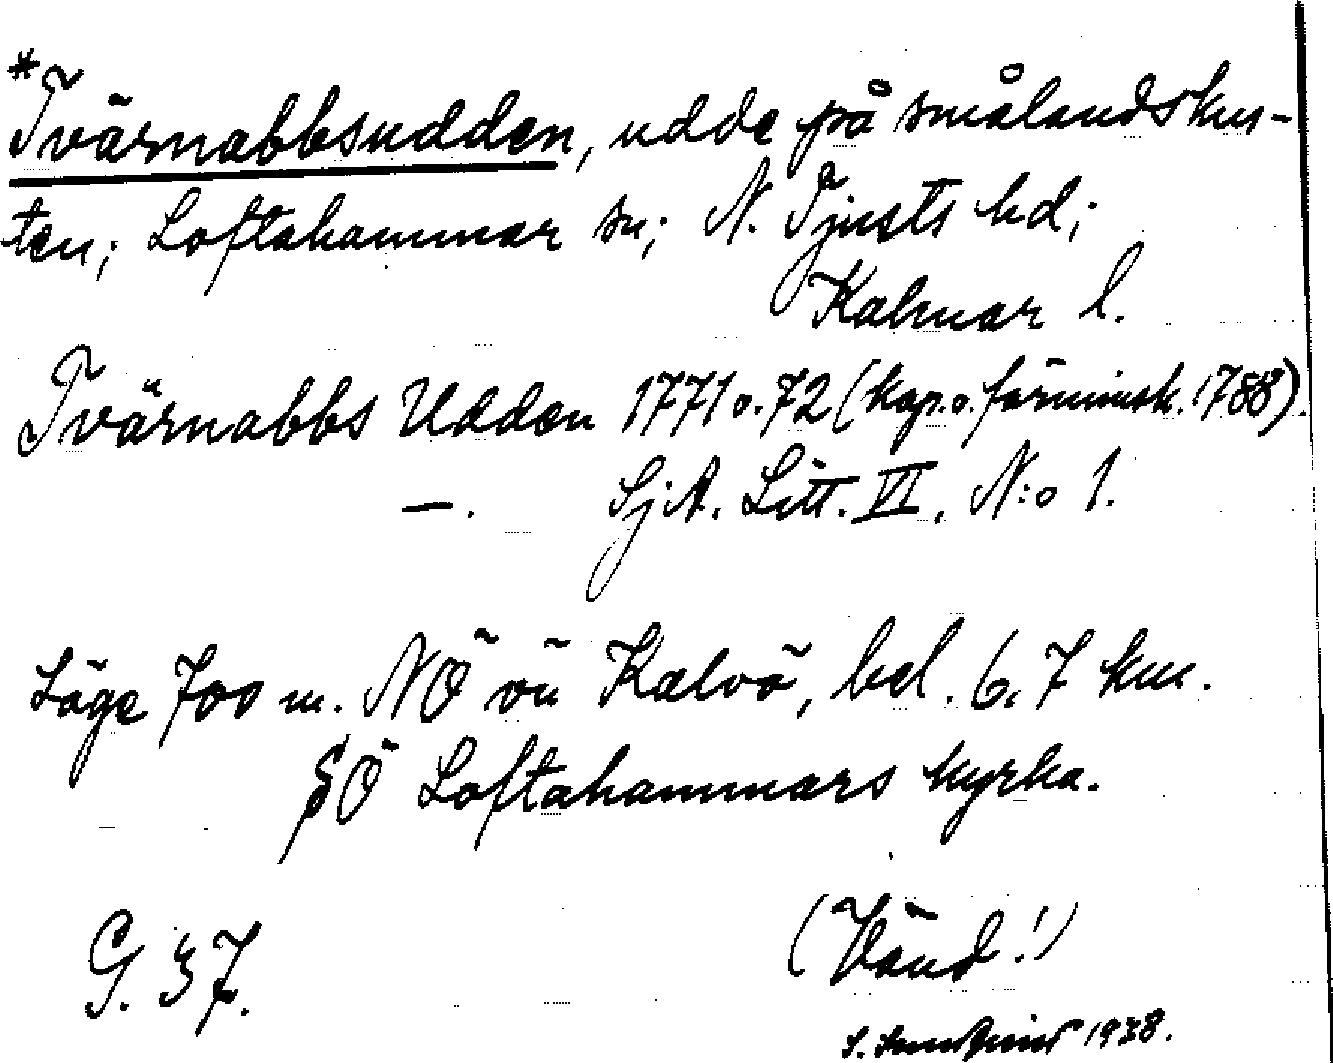 *Tvärnabbsudden, udde på smålandskus-
ten; Loftahammar sn; N. Tjusts hd;
Kalmar l.
Tvärnabbs Udden 1771 o. 72 (kop. o. förminsk. 1788)
—. SjA. Litt. VI, N:o 1.
Läge 700 m. NÖ om Kalvö, bel. 6,7 km.
SÖ Loftahammars kyrka.
G. 37.
(Vänd!)
S. 1938.